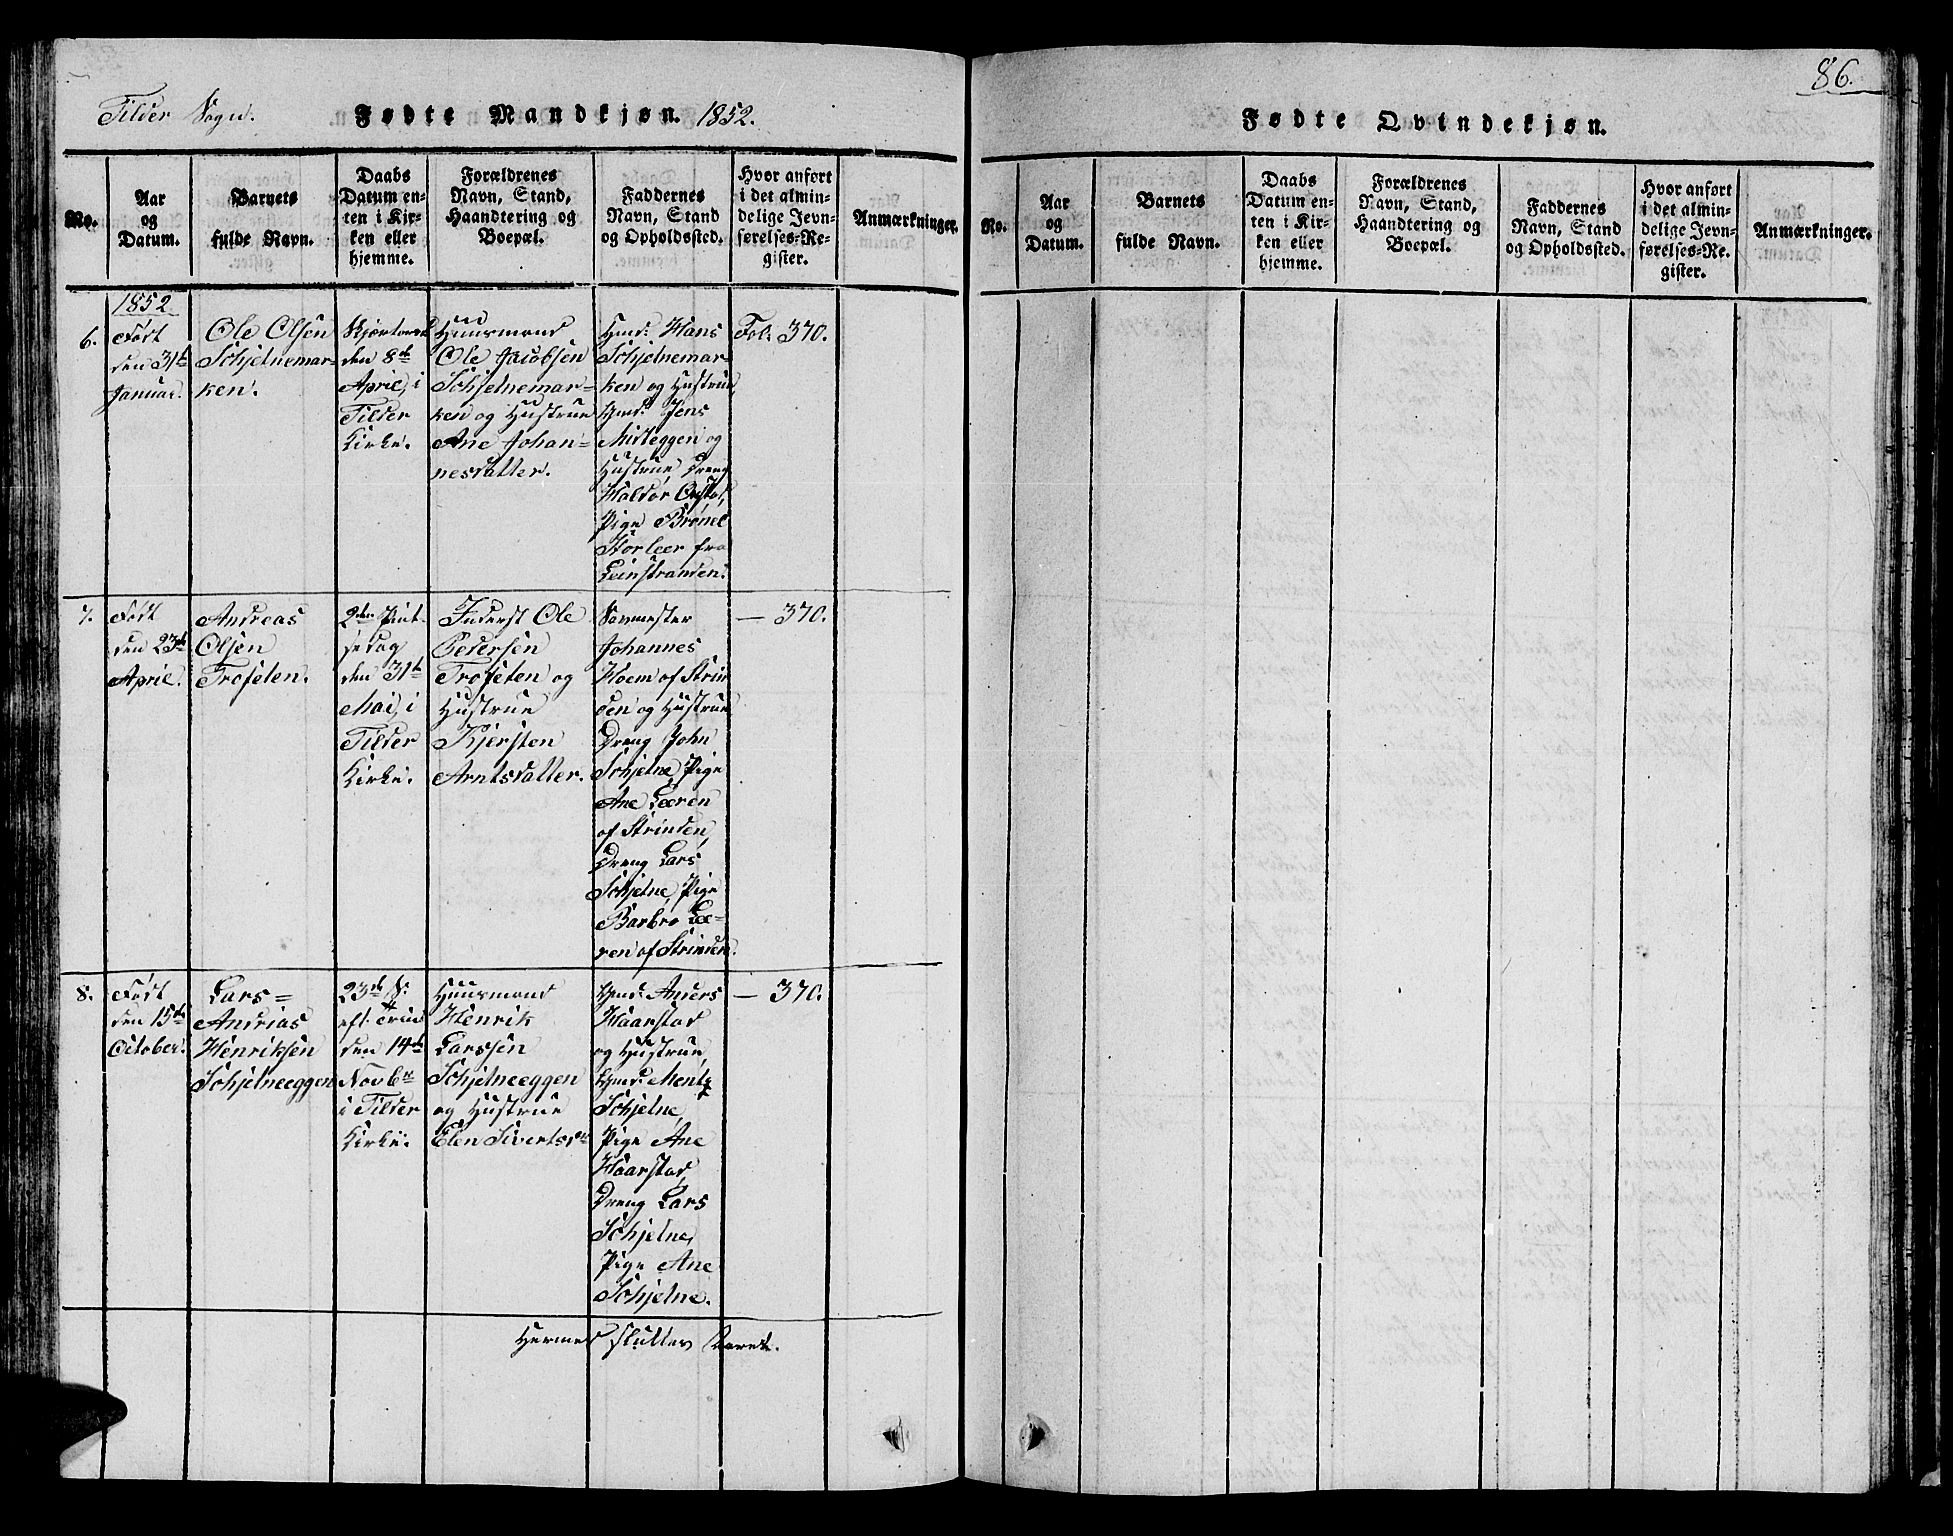 Tilder Sogn.
Fødte Mandkjøn. 1852.
No.
Aar
og
Datum.
Barnets
fulde Navn.
Daabs
Datum en-
ten i Kir-
ken eller
hjemme.
Forældrenes
Navn, Stand,
Haandtering og
Boepæl.
Faddernes
Navn, Stand
og Opholdssted.
Hvor anført
i det almin-
delige Jevn-
førelses-Re-
gister.
Anmærkninger.
6.
1852
Født
den 31te
Januar.
Ole Olsen
Schjelnemar-
ken.
Skjærtorsd.
den 8de
April, i
Tilder
Kirke.
Huusmand
Ole Jacobsen
Schjelnemar-
ken og Hustrue
Ane Johan-
nesdatter.
Gmd: Hans
Schjelnemar-
ken og Hustrue,
Gmd: Jens
og
Hustrue, Dreng
Haldor
Pige
fra
Leinstranden.
Fol. 370.
7.
Født
den 23de
April.
Andreas
Olsen
Trøseten.
2den Pint-
sedag
den 31te
Mai, i
Tilder
Kirke.
Inderst Ole
Pedersen
Trøseten og
Hustrue
Kjersten
Arntsdatter.
Johannes
Hoem af Strin
den og Hustrue
Dreng John
Schjelne, Pige
Ane Leeren
af Strinden,
Dreng Lars
Schjelne, Pige
Barbro Lee-
ren af Strinden.
— 370.
8.
Født
den 15de
October.
Lars-
Andrias
Henriksen
Schjelneeggen
23de S.
eft. Trin
den 14de
Novbr
i Tilder
Kirke.
Huusmand
Henrik
Larssen
Schjelneeggen
og Hustrue
Elen Sivertsdr
Gmd: Anders
Haarstad
og Hustrue,
Gmd: Mentz
Schjelne,
Pige Ane
Haarstad,
Dreng Lars
Schjelne,
Pige Ane
Schjelne.
— 370.
Hermed sluttes Aaret.
86.
Fødte Qvindekjøn.
No.
Aar
og
Datum.
Barnets
fulde Navn.
Daabs
Datum en-
ten i Kir-
ken eller
hjemme.
Forældrenes
Navn, Stand,
Haandtering og
Boepæl.
Faddernes
Navn, Stand
og Opholdssted.
Hvor anført
i det almin-
delige Jevn-
førelses-Re-
gister.
Anmærkninger.